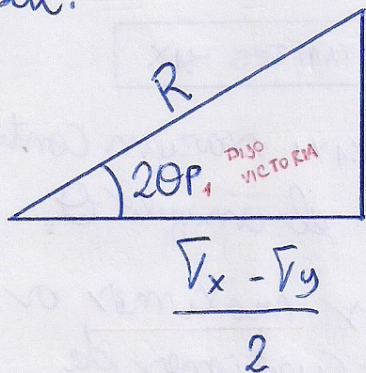 R
2θP₁
DIJO
VICTORIA
σx - σy
2